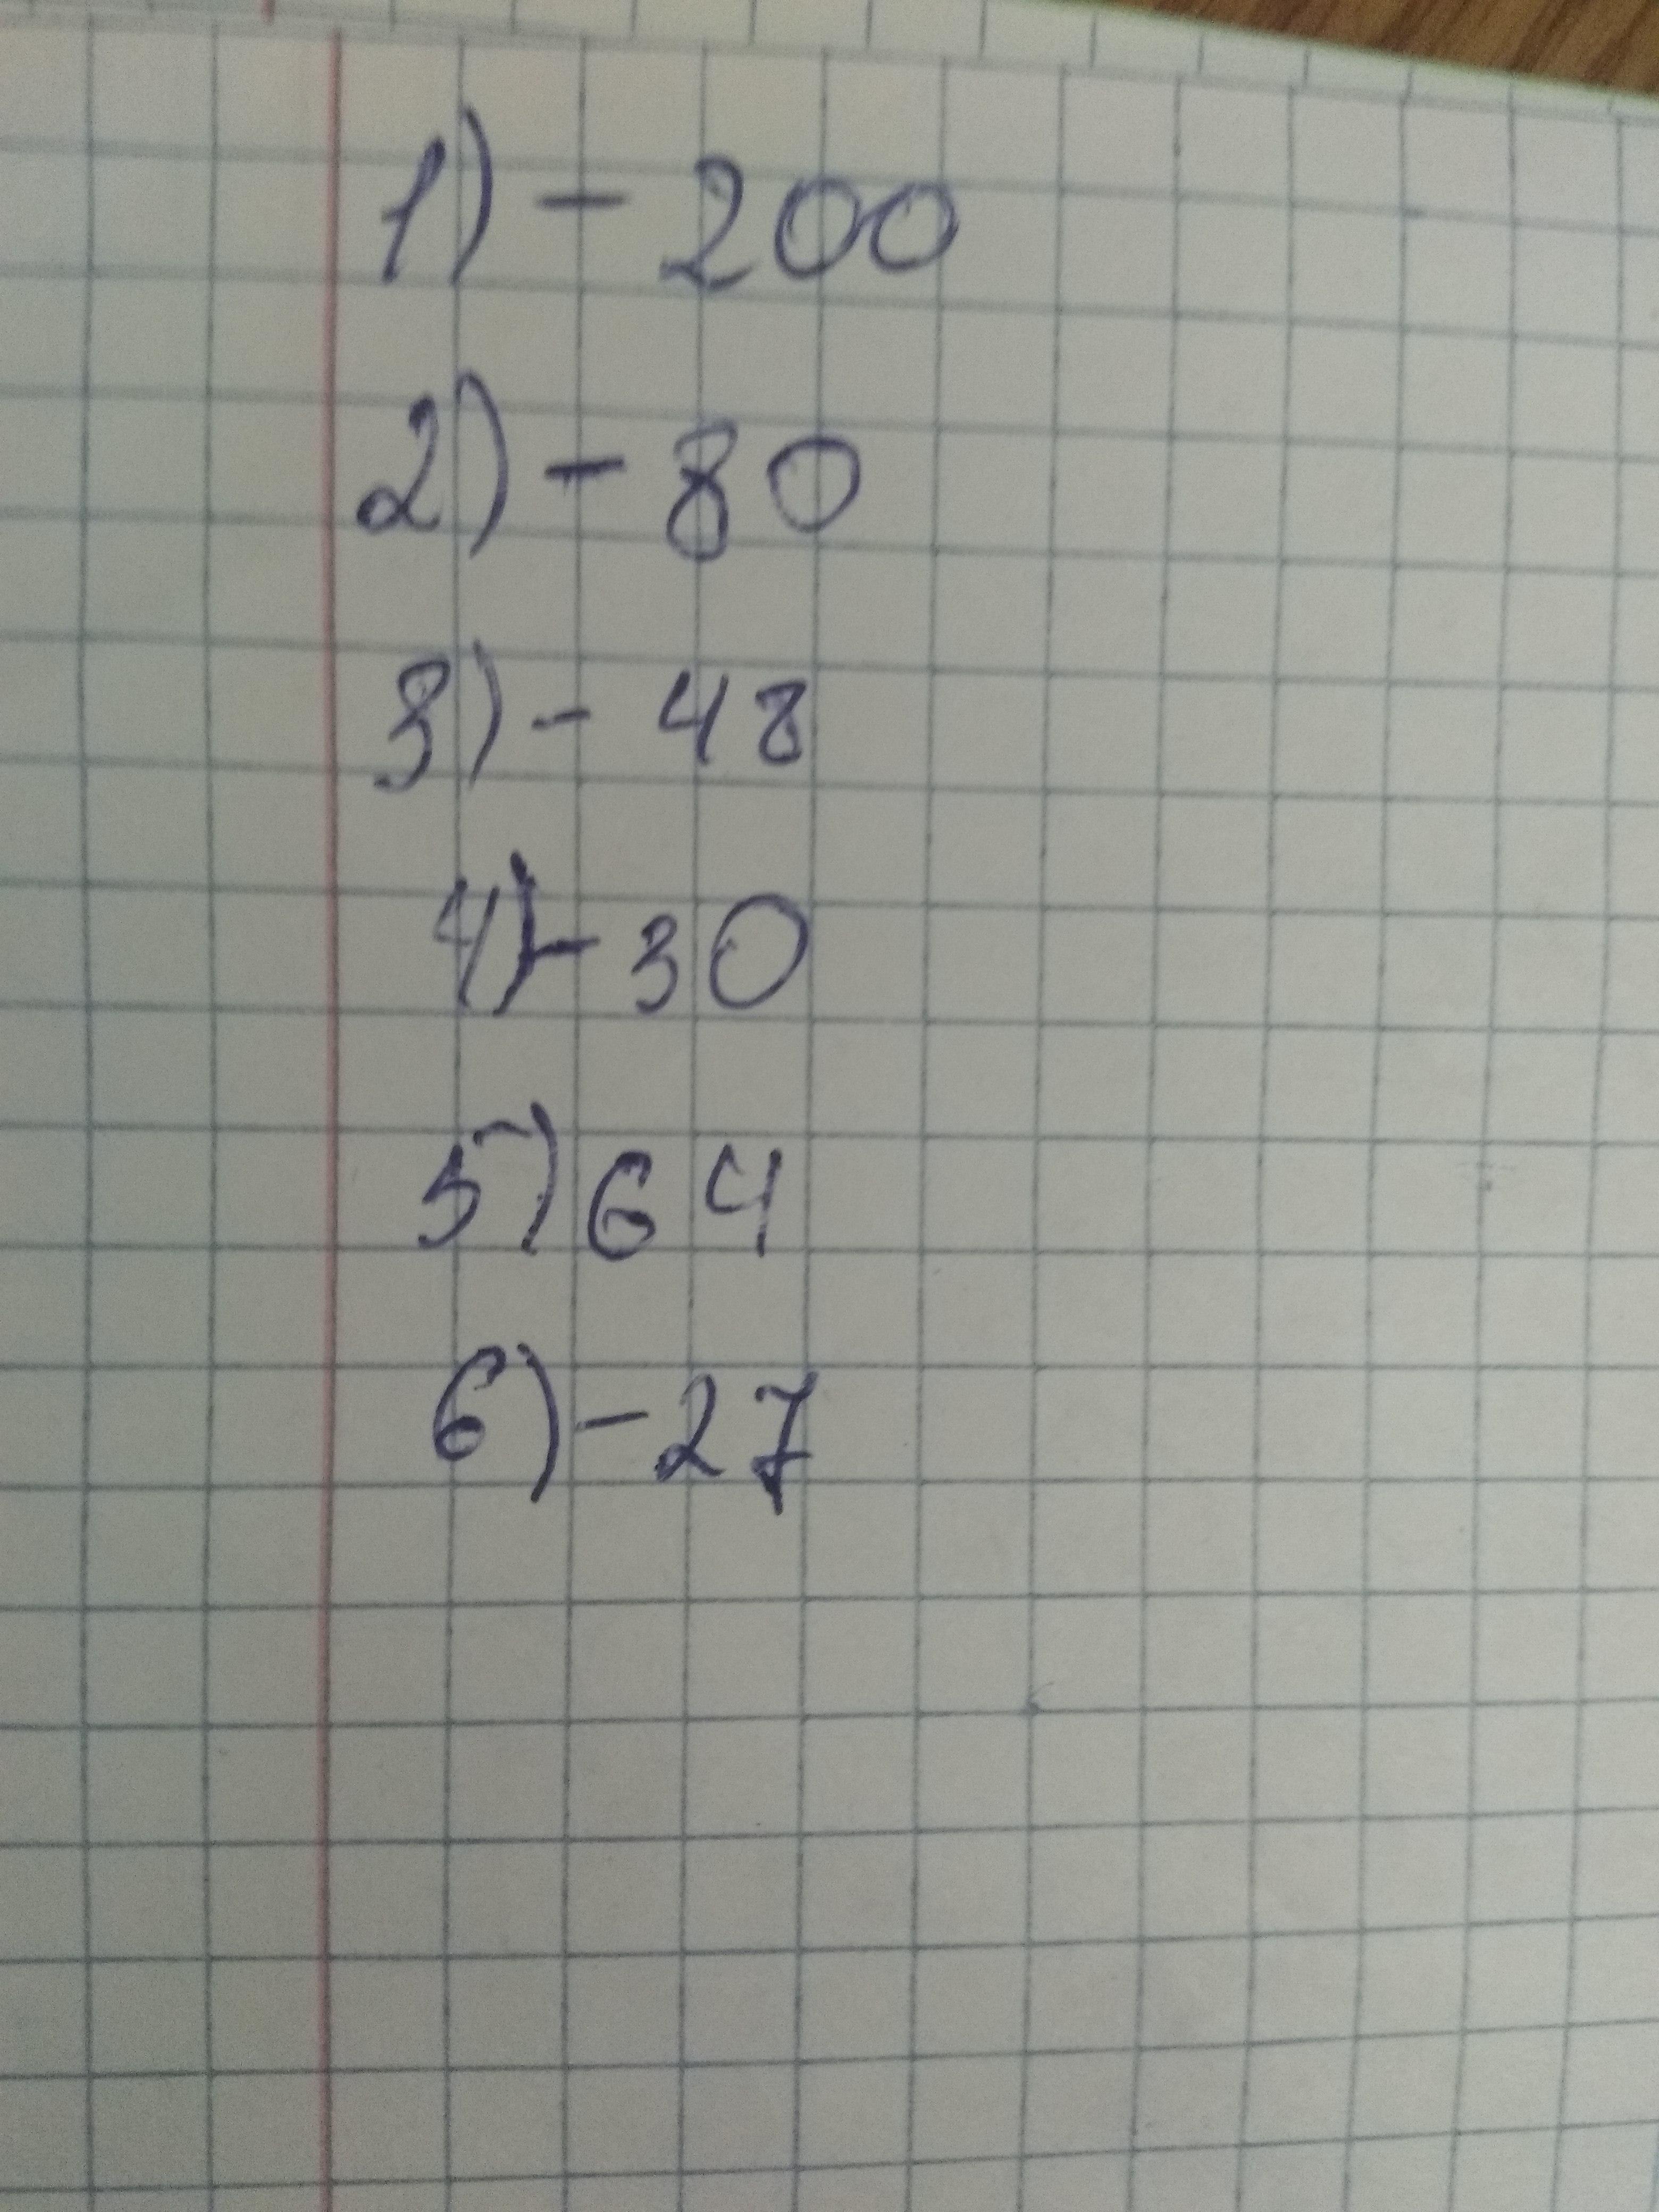 1) - 200
2) - 80
3) - 48
4) - 30
5) 64
6) - 27